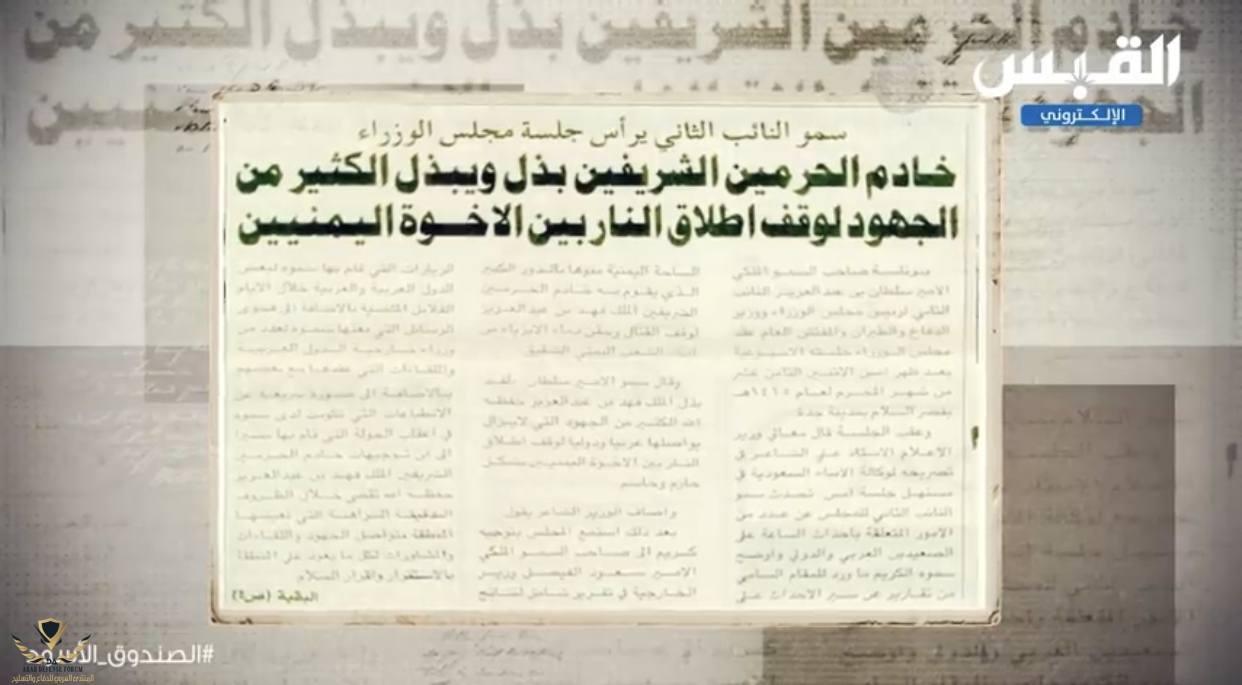 خادم الحرمين الشريفين بذل ويبذل الكثير من
القبس
الإلكتروني
سمو النائب الثاني يرأس جلسة مجلس الوزراء
خادم الحرمين الشريفين بذل ويبذل الكثير من
الجهود لوقف اطلاق النار بين الاخوة اليمنيين
برئاسة صاحب السمو الملكي
الامير سلطان بن عبد العزيز النائب
الثاني لرئيس مجلس الوزراء ووزير
الدفاع والطيران والمفتش العام عقد
مجلس الوزراء جلسته الاسبوعية
بعد ظهر امس الاثنين الثامن عشر
من شهر المحرم لعام ١٤١٥هـ
بقصر السلام بمدينة جدة.
وعقب الجلسة قال معالي وزير
الاعلام الاستاذ علي الشاعر في
تصريحه لوكالة الانباء السعودية في
مستهل جلسة امس تحدث سمو
النائب الثاني للمجلس عن عدد من
الامور المتعلقة باحداث الساعة على
الصعيدين العربي والدولي واوضح
سموه الكريم ما ورد للمقام السامي
من تقارير عن سير الاحداث على
الساحة اليمنية منوها بالدور الكبير
الذي يقوم به خادم الحرمين
الشريفين الملك فهد بن عبدالعزيز
لوقف القتال وحقن دماء الابرياء من
ابناء الشعب اليمني الشقيق
وقال سمو الامير سلطان لقد
بذل الملك فهد بن عبدالعزيز حفظه
الله الكثير من الجهود التي لايزال
يواصلها عربيا ودوليا لوقف اطلاق
النار بين الاخوة اليمنيين بشكل
حازم وحاسم
واضاف الوزير الشاعر يقول
بعد ذلك استمع المجلس بتوجيه
كريم الى صاحب السمو الملكي
الامير سعود الفيصل وزير
الخارجية في تقرير شامل لنتائج
الزيارات التي قام بها سموه لبعض
الدول العربية والغربية خلال الايام
القلائل الماضية بالاضافة الى فحوى
الرسائل التي بعثها سموه لعدد من
وزراء خارجية الدول العربية
واللقاءات التي عقدها مع بعضهم
بالاضافة الى صورة سريعة عن
الانطباعات التي تكونت لدى سموه
في اعقاب الجولة التي قام بها مشيرا
الى ان توجيهات خادم الحرمين
الشريفين الملك فهد بن عبدالعزيز
حفظه الله تقضي خلال الظروف
الدقيقة الراهنة التي تعيشها
المنطقة بتواصل الجهود واللقاءات
والمشاورات لكل ما يعود على المنطقة
بالاستقرار واقرار السلام
البقية (ص٤)
#الصندوق_الأسود
ARAB DEFENSE FORUM
المنتدى العربي للدفاع والتسليح